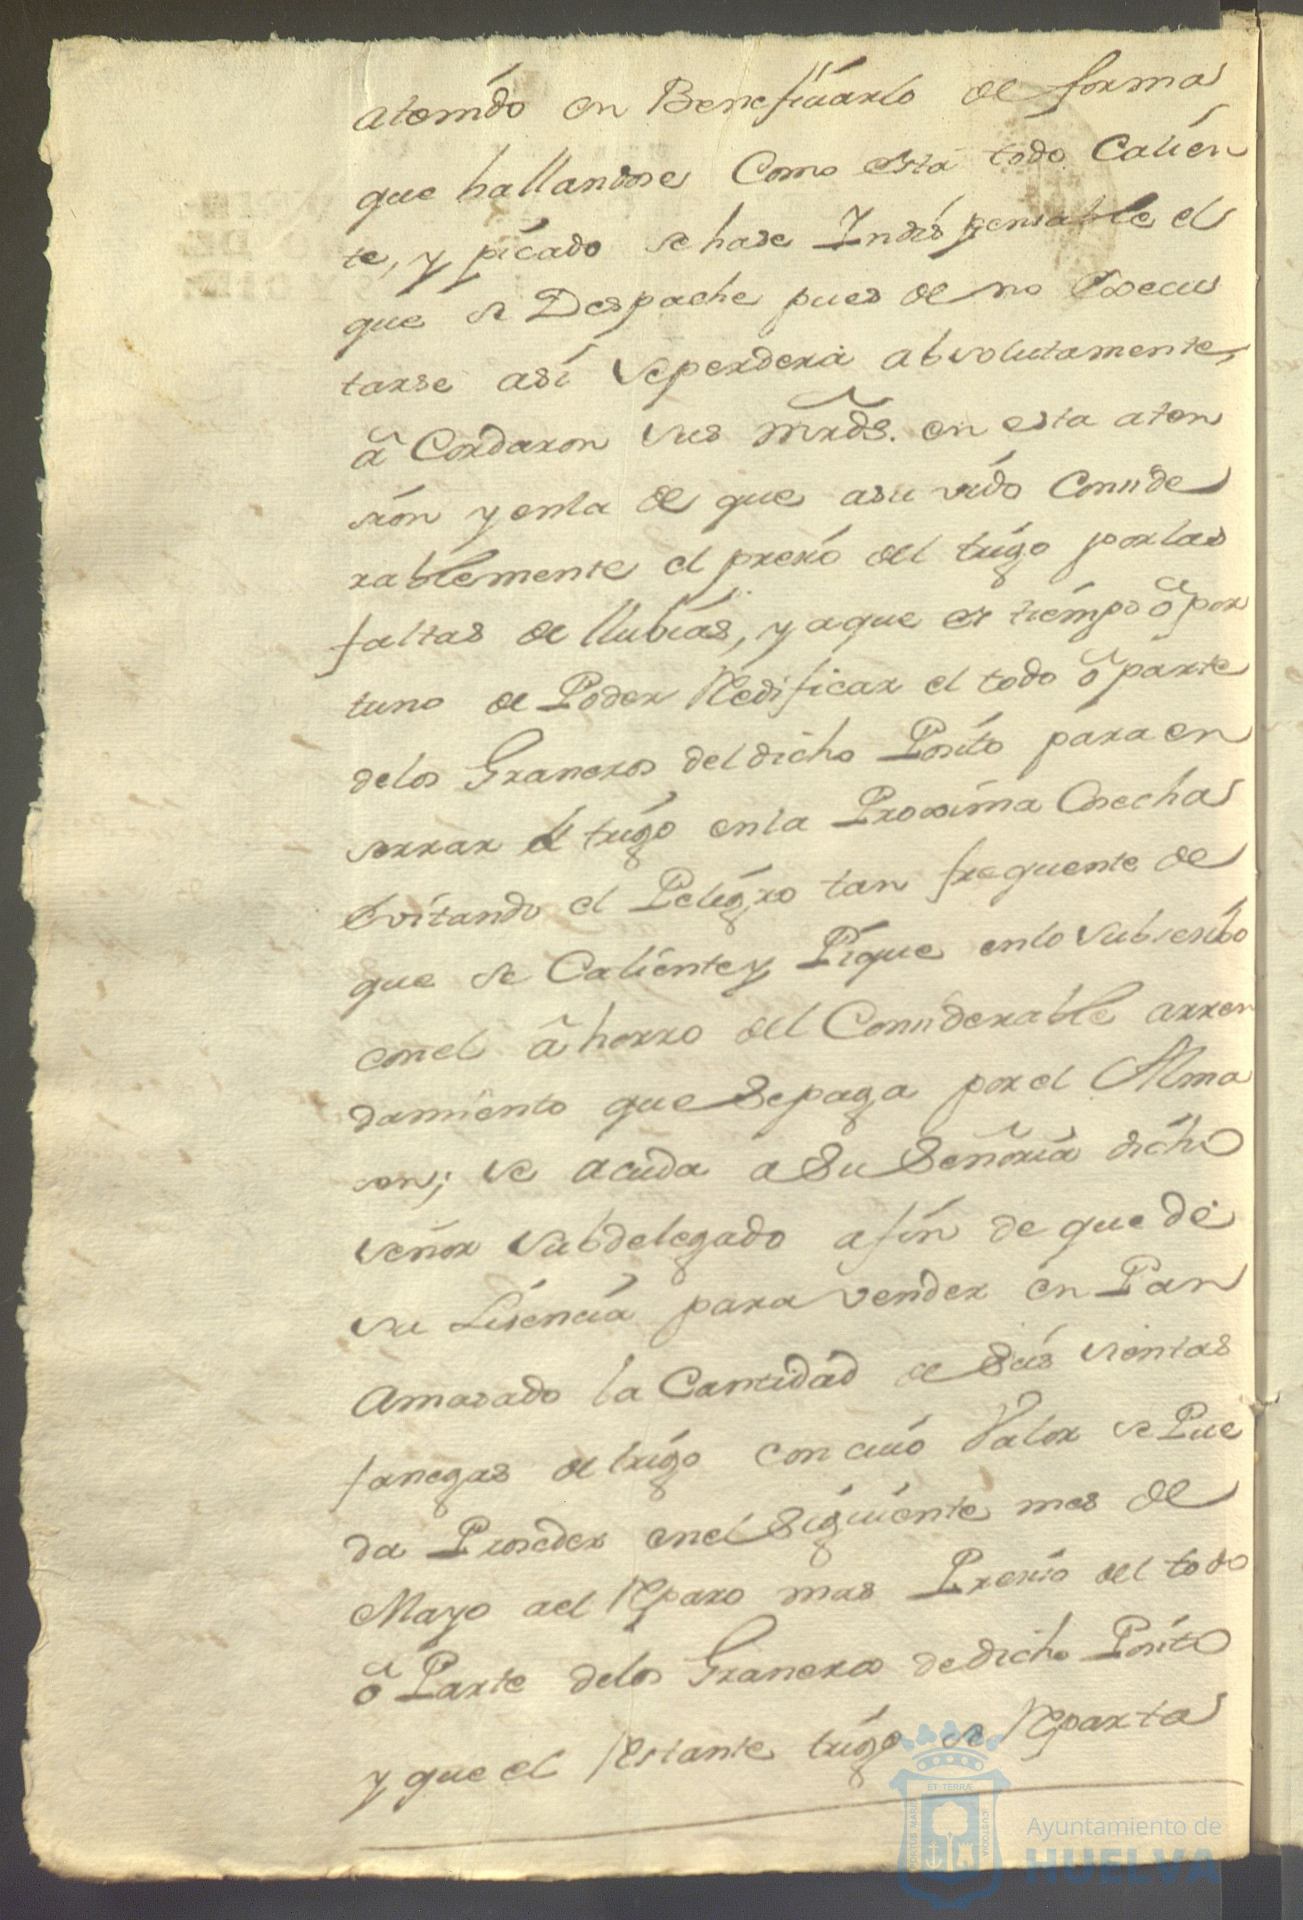 atenido en Beneficiarlo de forma
que hallandose Como està todo Calien
te, y picado se hase Indispensable el
que se Despache pues de no Execu
tarse así se perderà absolutamente,
âCordaron sus mrds. en esta aten
sión y enla de que asu vido Conside
rablemente el presio del trigo porlas
faltas de llubias, y aque es tiempo ôpor
tuno de Poder Redificar el todo ô parte
delos Graneros deldicho Posito para en
serrar el trigo enla Proxima Cosecha
Evitando el Peligro tan frequente de
que se Caliente y Pique enlo Subsesibo
conel âhorro del Considerable arren
damiento que Sepaga por el Alma
sen; se acuda a Su Señoria dicho
señor Subdelegado afin de que dè
su Lisencia para vender en Pan
Amasado la Cantidad de Seis sientas
fanegas de trigo con cuio Valor se Pue
da Proseder enel Siguiente mes de
Mayo ael Reparo mas Presiso del todo
ô Parte delos Graneros dedicho Posito
y que el Restante trigo se Reparta
Ayuntamiento de
HUELVA